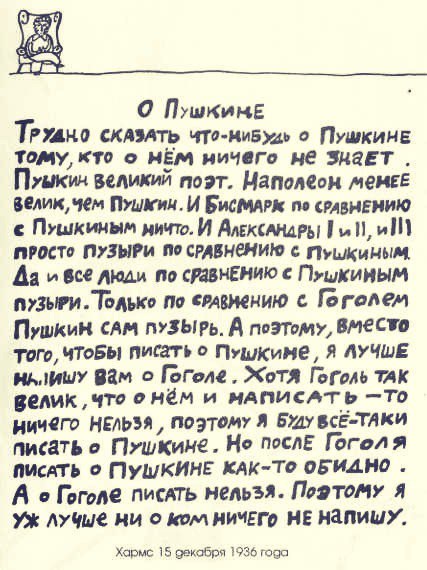 О Пушкине
Трудно сказать что-нибудь о Пушкине
тому, кто о нём ничего не знает.
Пушкин великий поэт. Наполеон менее
велик, чем Пушкин. И Бисмарк по сравнению
с Пушкиным ничто. И Александры I и II, и III
просто пузыри по сравнению с Пушкиным.
Да и все люди по сравнению с Пушкиным
пузыри. Только по сравнению с Гоголем
Пушкин сам пузырь. А поэтому, вместо
того, чтобы писать о Пушкине, я лучше
напишу вам о Гоголе. Хотя Гоголь так
велик, что о нём и написать-то
ничего нельзя, поэтому я буду всё-таки
писать о Пушкине. Но после Гоголя
писать о Пушкине как-то обидно.
А о Гоголе писать нельзя. Поэтому я
уж лучше ни о ком ничего не напишу.
Хармс 15 декабря 1936 года